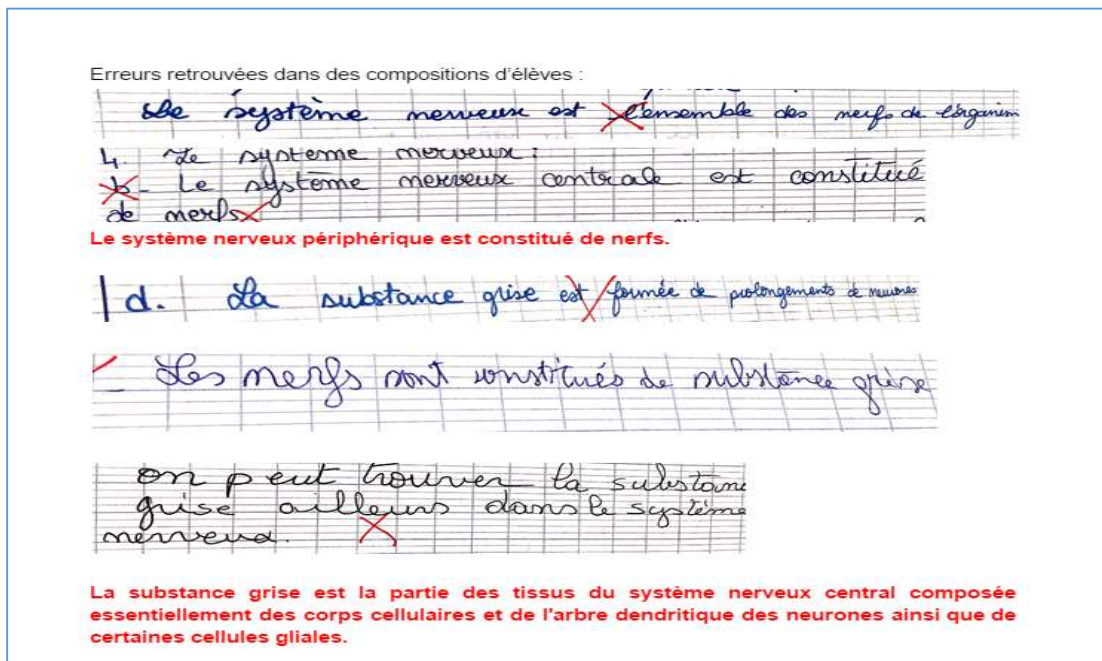 Erreurs retrouvées dans des compositions d'élèves :
Le système nerveux est l'ensemble des nerfs de l'organism
4. Le systeme nerveux :
b- Le système nerveux centrale est constitué
de nerfs
Le système nerveux périphérique est constitué de nerfs.
d. La substance grise est formée de prolongements de neurones
Les nerfs sont constitués de substance grise
on peut trouver la substanc
grise ailleurs dans le système
nerveux.
La substance grise est la partie des tissus du système nerveux central composée
essentiellement des corps cellulaires et de l'arbre dendritique des neurones ainsi que de
certaines cellules gliales.